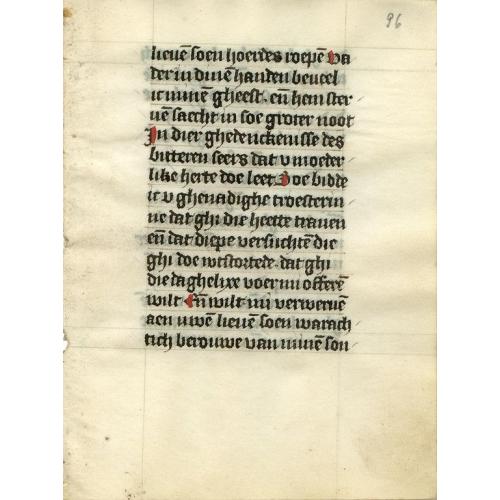 96
lieuē soen hoerdes roepē Va
der in dinē handen beueel
ic minē gheest. eñ hem ster
uē saecht in soe groter noot
In dier ghedenckenisse des
bitteren seers dat v moeder
like herte doe leet. Soe bidde
ic v ghenadighe troesterin
ne dat ghi die heette tranen
eñ dat diepe versuchtē die
ghi doe wtstortede. dat ghi
die daghelixe voer mi offerē
wilt Eñ wilt mi verweruē
aen uwē lieuē soen warach
tich berouwe van minē son